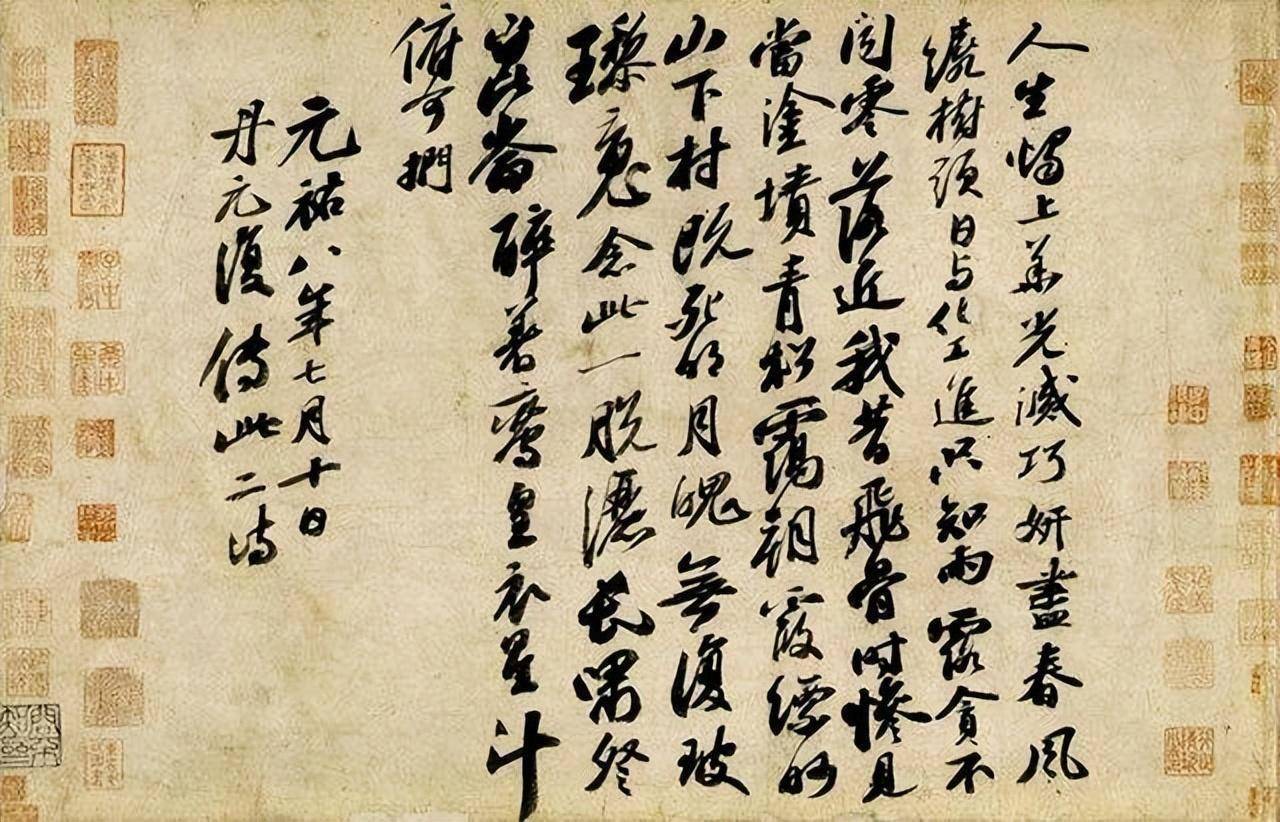 人生燭上華光滅巧妍盡春風
繞樹頭日与化工進只知雨露貪不
聞零落近我昔飛骨時慘見
當塗墳青松靄朝霞縹緲
山下村既死明月魄無復玻
瓈魂念此一脫灑長嘯祭
崑崙醉著鸞皇衣星斗
俯可捫
元祐八年七月十日
丹元復傳此二詩